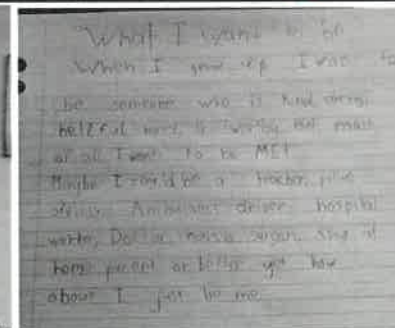 What I want to be
When I grow up I want to
be someone who is kind
helpful most
of all I want to be ME!
Maybe I could be a teacher,
Ambulance driver, hospital
worker, Doctor, nurse, stay at
home parent or better yet how
about I just be me